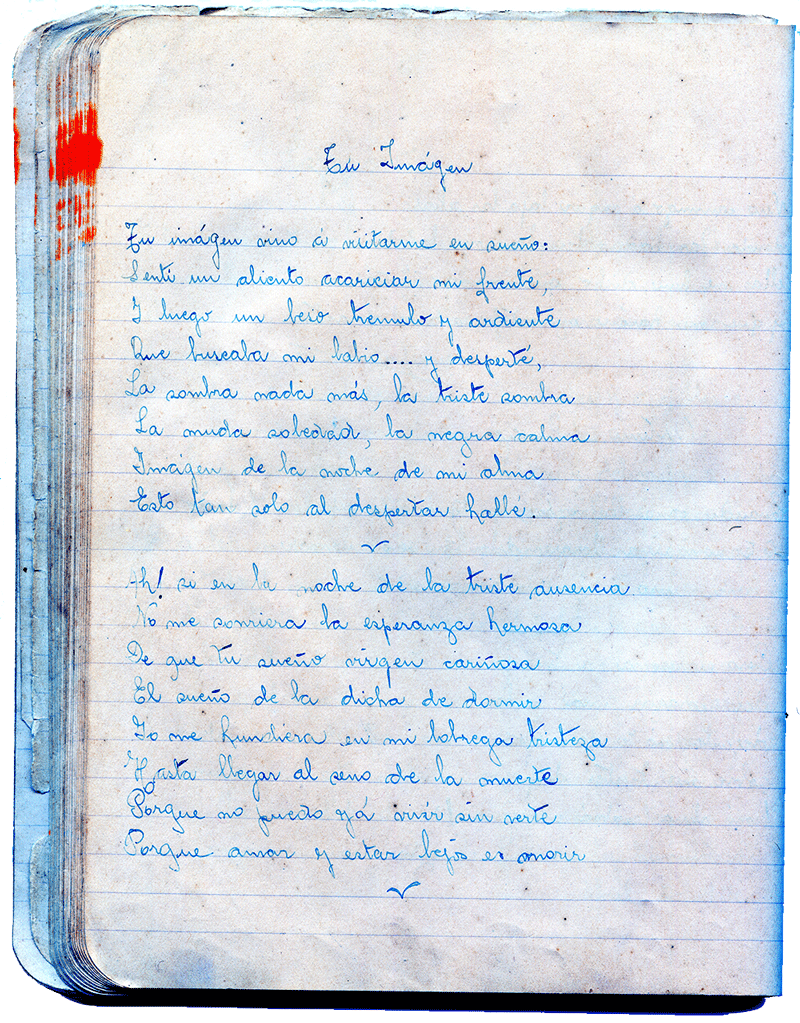 Tu Imágen
Tu imágen vino á visitarme en sueño:
Senti un aliento acariciar mi frente,
I luego un beso trémulo y ardiente
Que buscaba mi labio.... y desperté,
La sombra nada más, la triste sombra
La muda soledad, la negra calma
Imágen de la noche de mi alma
Esto tan solo al despertar hallé.
Ah! si en la noche de la triste ausencia
No me sonriera la esperanza hermosa
De que tu sueño virgen cariñosa
El sueño de la dicha de dormir
Yo me hundiera en mi lobrega tristeza
Hasta llegar al seno de la muerte
Porque no puedo yá vivir sin verte
Porque amar y estar lejos es morir